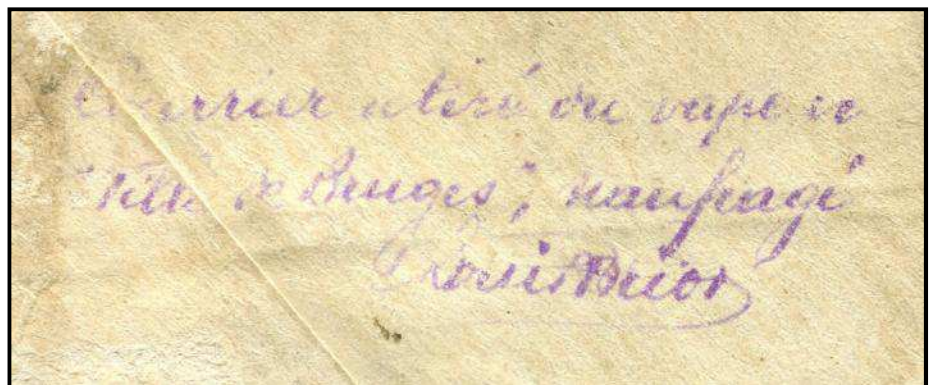 Courrier retiré du vapeur
"Ville de Bruges", naufragé